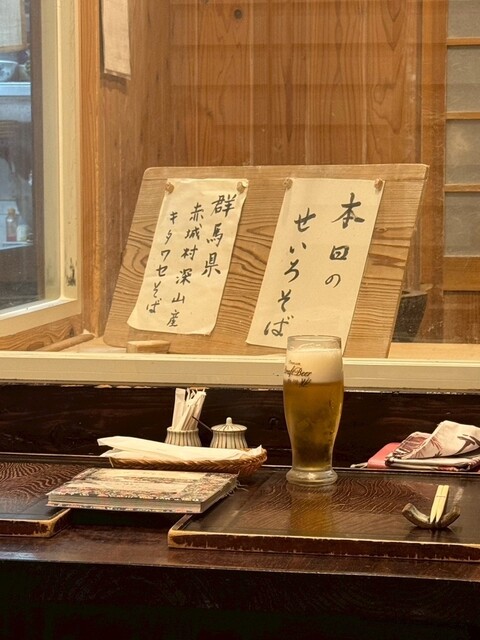 本日の
せいろそば
群馬県
赤城村深山産
キタワセそば
Craft Beer